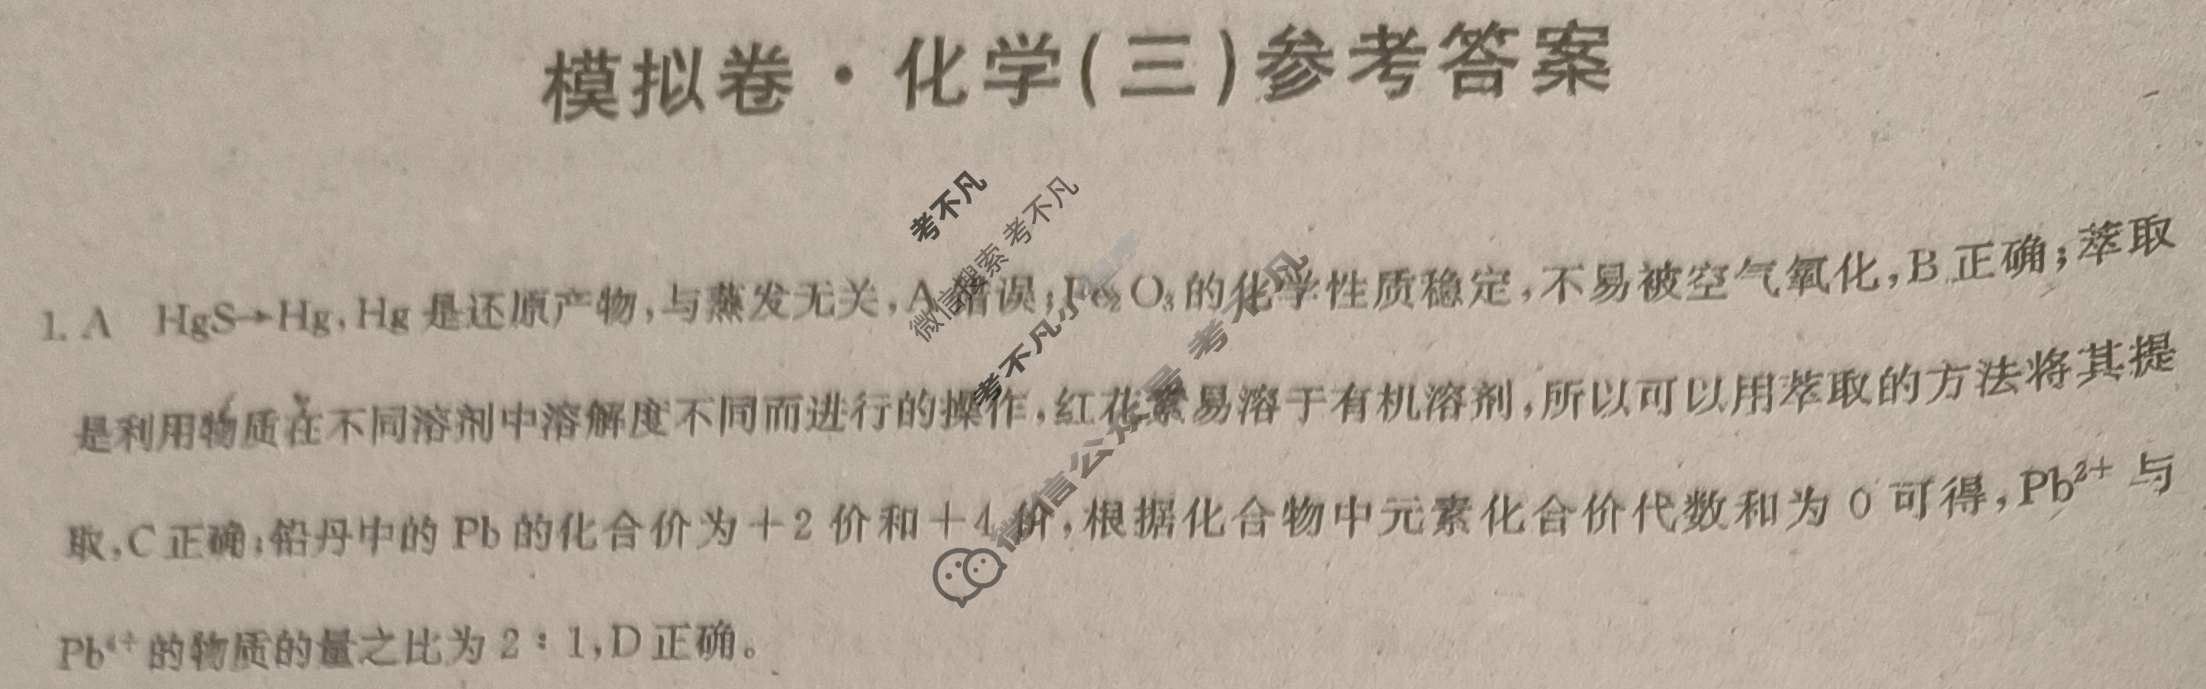 模拟卷·化学(三)参考答案
1. A HgS→Hg,Hg 是还原产物,与蒸发无关,A 错误;Fe₂O₃ 的化学性质稳定,不易被空气氧化,B 正确;萃取
是利用物质在不同溶剂中溶解度不同而进行的操作,红花素易溶于有机溶剂,所以可以用萃取的方法将其提
取,C 正确;铅丹中的 Pb 的化合价为+2 价和+4 价,根据化合物中元素化合价代数和为 0 可得,Pb²⁺ 与
Pb⁴⁺ 的物质的量之比为 2:1,D 正确。
考不凡
微信搜索 考不凡
考不凡小程序
微信公众号 考不凡